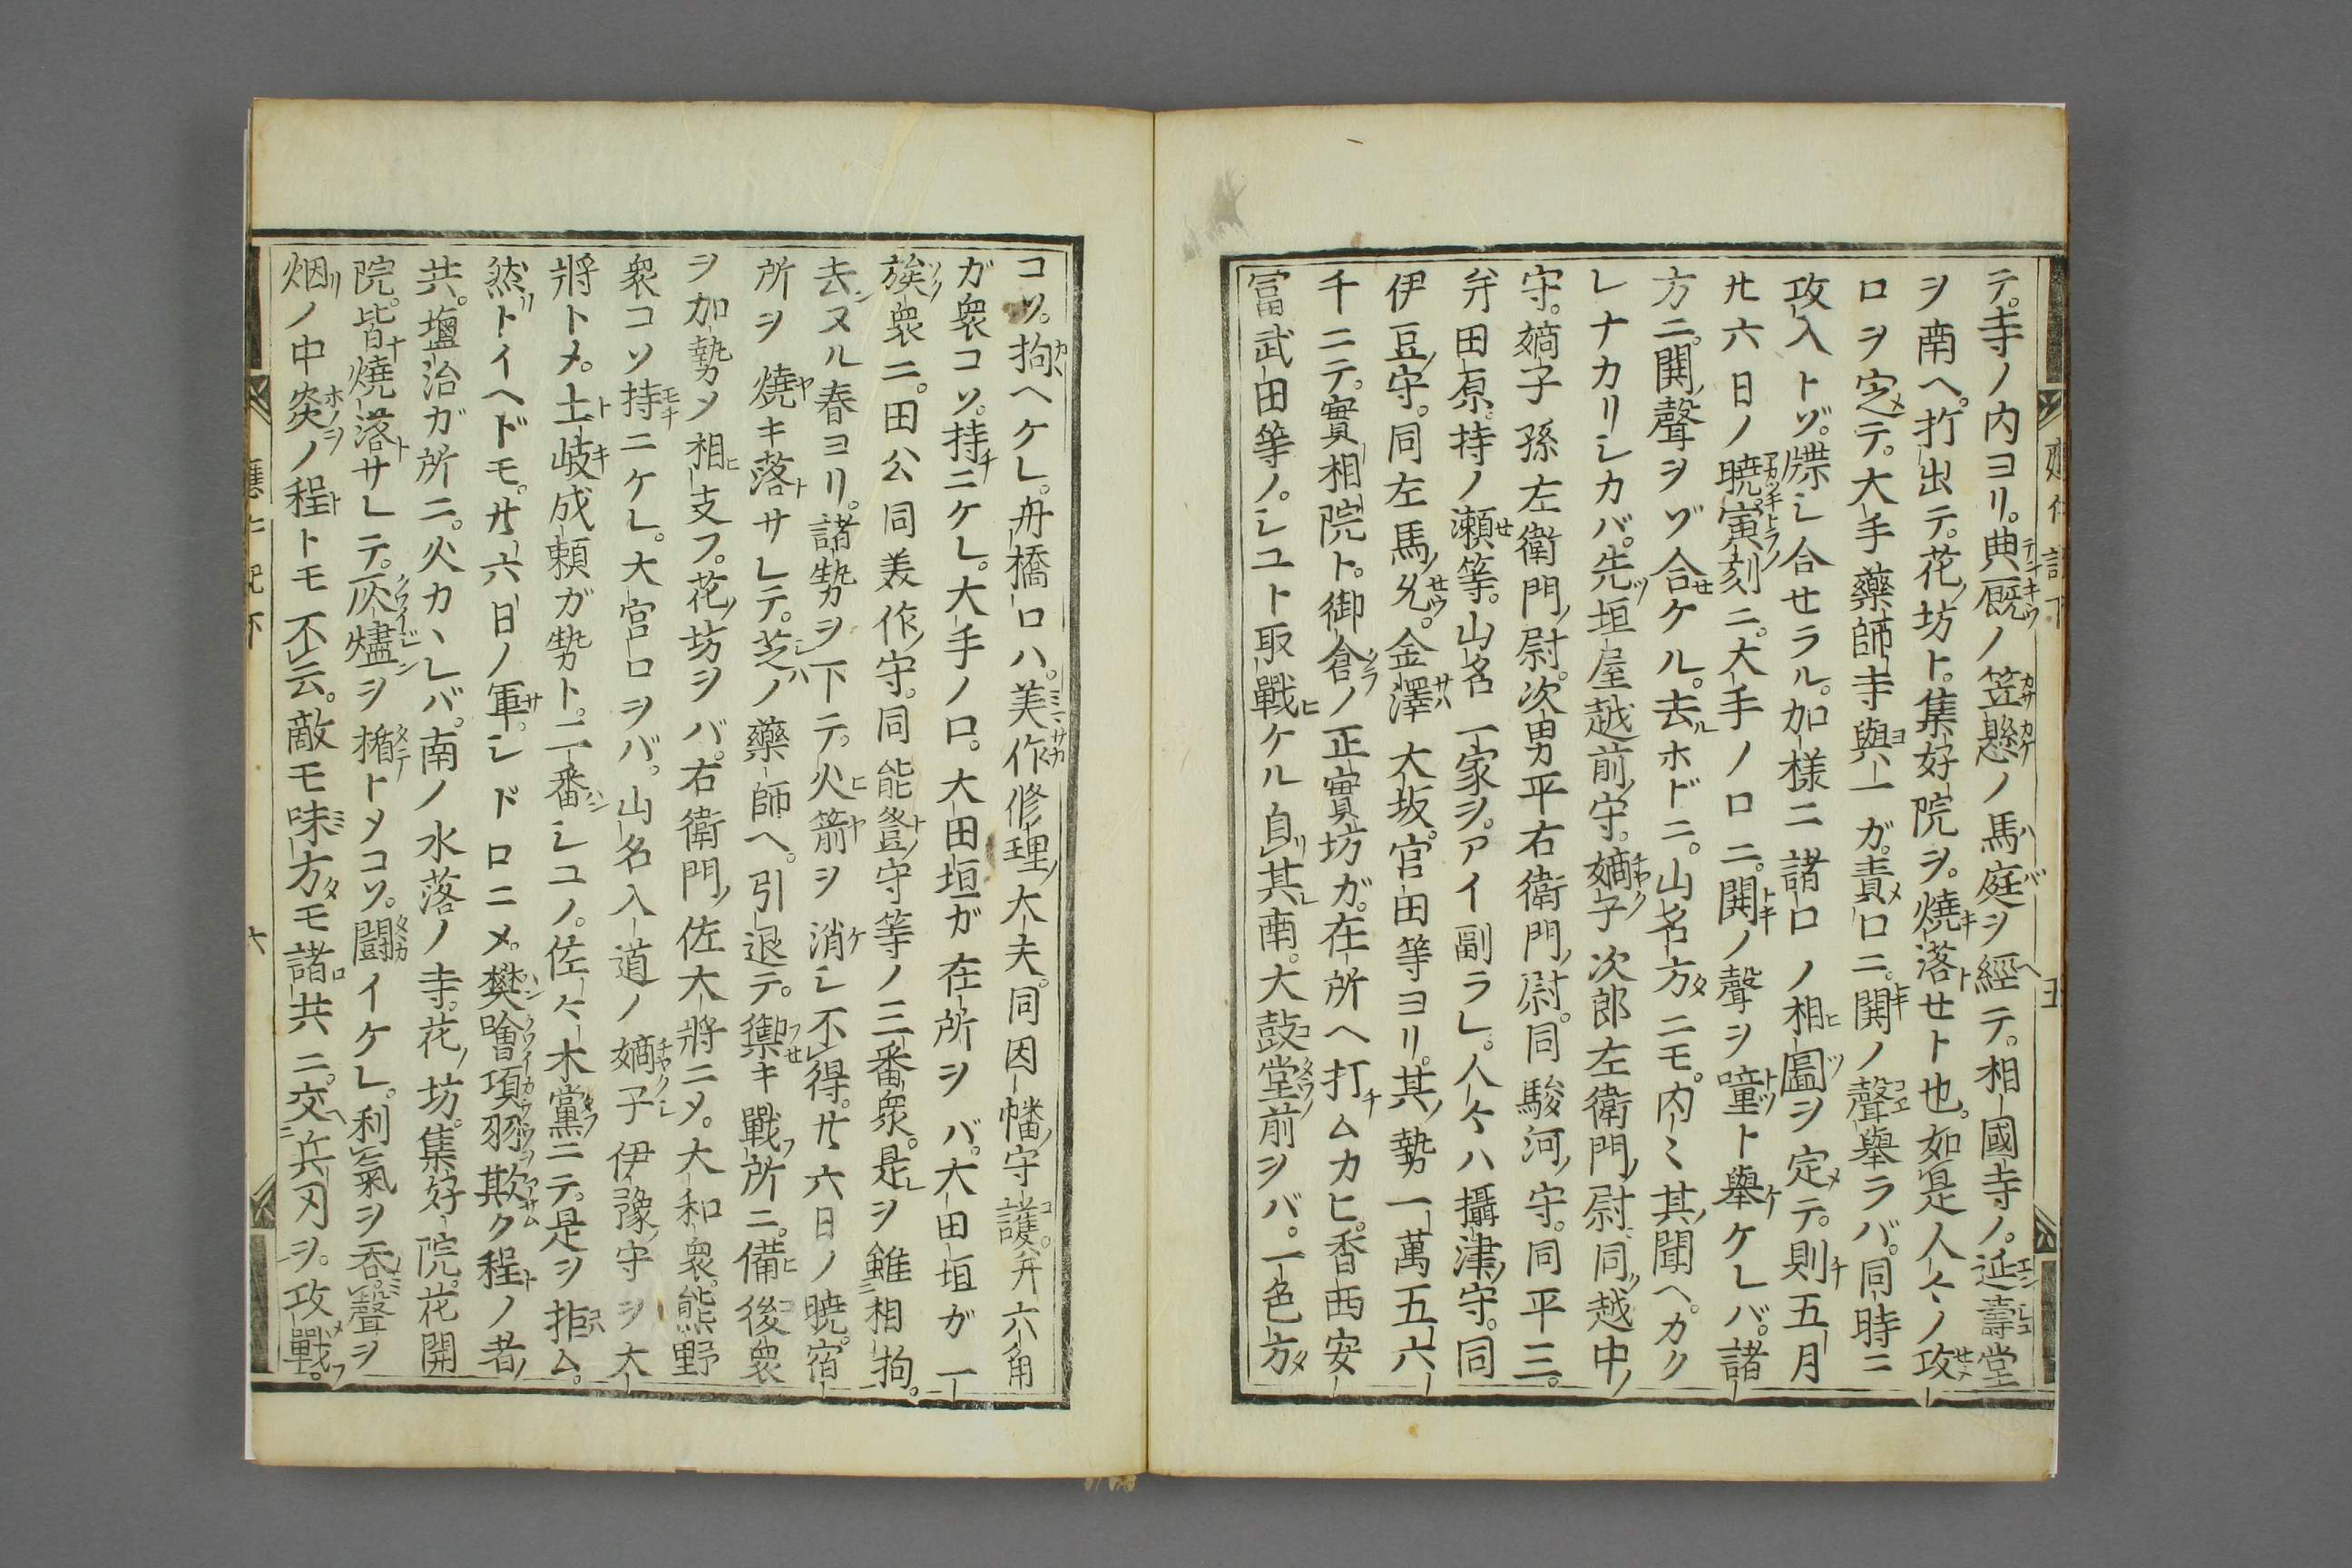 テ。寺ノ内ヨリ。典厩ノ笠懸ノ馬庭ヲ經テ。相國寺ノ。延壽堂
ヲ南ヘ。打出テ。花ノ坊ト。集好院ヲ。燒落セト也。如是人々ノ攻
口ヲ定テ。大手藥師寺與一ガ。責口ニ。鬨ノ聲舉ラバ。同時ニ
攻入トゾ。牒シ合セラル。加様ニ諸口ノ相圖ヲ定テ。則五月
廿六日ノ曉。寅ノ刻ニ。大手ノ口ニ。鬨ノ聲ヲ噇ト舉ケレバ。諸
方ニ。鬨ノ聲ヲゾ合ケル。去ホドニ。山名方ニモ。内ミ其聞ヘ。カク
レナカリシカバ。先ヅ垣屋越前ノ守。嫡子次郎左衛門ノ尉。同越中ノ
守。嫡子孫左衛門ノ尉。次男平右衛門ノ尉。同駿河ノ守。同平三。
弁田原。持ノ瀬等。山名一家ヲ。アイ副ラレ。人々ハ攝津ノ守。同
伊豆ノ守。同左馬ノ允。金澤大坂。官田等ヨリ。其ノ勢一萬五六
千ニテ。實相院ト。御倉ノ正實坊ガ。在所ヘ打ムカヒ。香西安
富武田等ノ。シユト取戰ケル自其南。大鼓堂ノ前ヲバ。一色方
コソ。拘ヘケレ。舟橋口ハ。美作修理ノ大夫。同因幡ノ守護。弁六角
ガ衆コソ。持ニケレ。大手ノ口。大田垣ガ在所ヲバ。大田垣ガ一
族衆ニ。田公同美作ノ守。同能登ノ守等ノ三番衆。是ヲ雖相拘。
去ヌル春ヨリ。諸勢ヲ下テ。火箭ヲ消シ不得。廿六日ノ曉。宿
所ヲ燒キ落サレテ。芝ノ藥師ヘ。引退テ。禦キ戰フ所ニ。備後衆
ヲ加勢メ相支フ。花ノ坊ヲバ。右衛門ノ佐大將ニメ。大和衆。熊野
衆コソ持ニケレ。大宮口ヲバ。山名入道ノ嫡子伊豫ノ守ヲ大
將トメ。土岐成頼ガ勢ト。二番シユノ。佐々木黨ニテ。是ヲ拒ム。
然リトイヘドモ。廿六日ノ軍。シドロニメ。樊噲項羽欺ク程ノ者
共。塩治ガ所ニ。火カヽレバ。南ノ水落ノ寺。花ノ坊。集好院。花開
院。皆燒落サレテ。灰燼ヲ楯トメコソ。鬪イケレ。利氣ヲ呑聲ヲ
烟リノ中炎ノ程トモ不云。敵モ味方モ諸共ニ。交兵刃ヲ。攻戰フ。
六